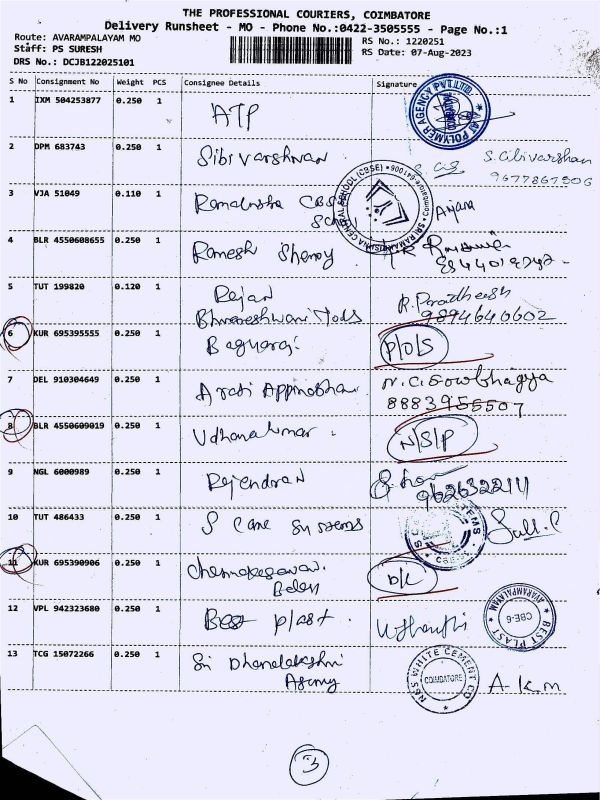 THE PROFESSIONAL COURIERS, COIMBATORE
Delivery Runsheet - MO - Phone No.:0422-3505555 - Page No.:1
Route: AVARAMPALAYAM MO
RS No.: 1220251
Staff: PS SURESH
RS Date: 07-Aug-2023
DRS No.: DCJB122025101
S No Consignment No Weight PCS Consignee Details Signature
1 IXM 504253877 0.250 1 ATP
2 DPM 683743 0.250 1 Sibi Varshnan S. Cibivarshan
9677867506
3 VJA 51049 0.110 1 CBSE Anjana
School
SRI RAMAKRISHNA CENTRAL SCHOOL (CBSE)
4 BLR 4550608655 0.250 1 Ramesh Shenoy
5 TUT 199820 0.120 1 Rejan
Bhuvaneshwari Tools 9894640602
6 KUR 695395555 0.250 1 P/O/S
7 DEL 910304649 0.250 1 Arati N.C. Sowbhagya
8883955507
8 BLR 4550609019 0.250 1 Udhanakumar N/S/P
9 NGL 6000989 0.250 1 Rejendran
9626322211
10 TUT 486433 0.250 1 S Cane Systems
11 KUR 695390906 0.250 1 D/L
12 VPL 942323680 0.250 1 Best plast
BEST PLAST CBE-6 AVARAMPALAYAM
13 TCG 15072266 0.250 1 Sri Dhanalakshmi A.K.m
Agency
N&S WHITE CEMENT CO COIMBATORE
3